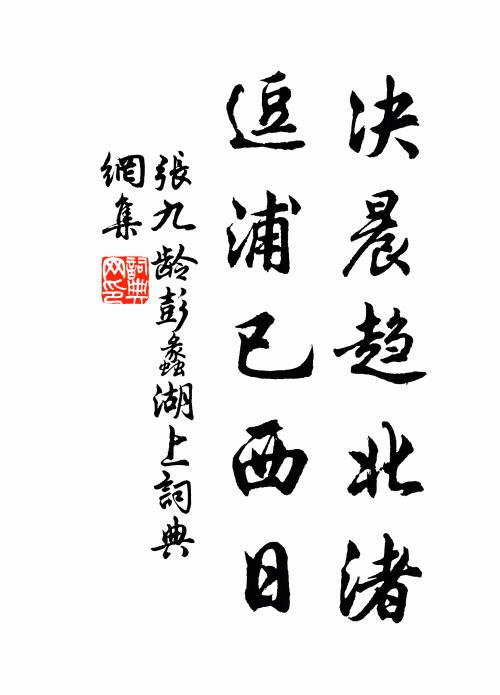 决晨趋北渚
逗浦已西日
張九龄彭蠡湖上詞典
網集
詞典
网印